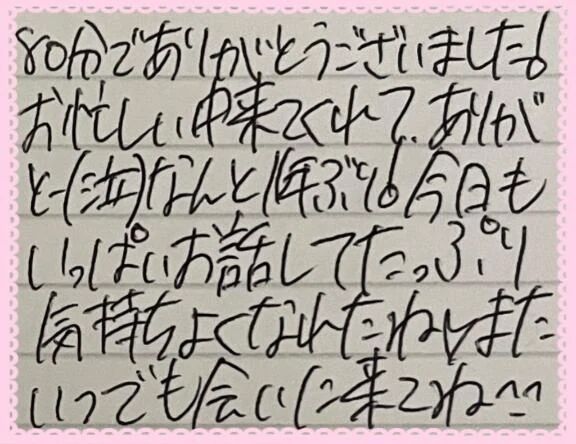 80分でありがとうございました!
お忙しい中来てくれて、ありが
とー(泣)なんと1年ぶり!今日も
いっぱいお話してたっぷり
気持ちよくなれたね♡また
いつでも会いに来てね^^